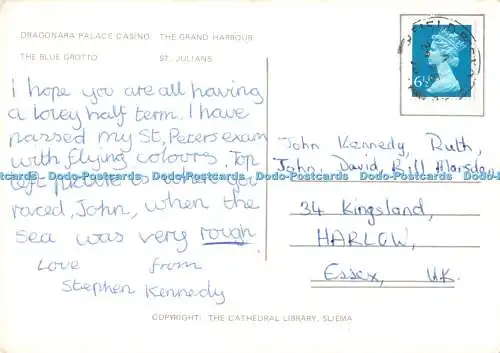 DRAGONARA PALACE CASINO THE GRAND HARBOUR
THE BLUE GROTTO ST. JULIANS
I hope you are all having
a lovey half term. I have
passed my St, Peters exam
with flying colours. Top
left picture is where
raced, John, when the
sea was very rough
Love from
Stephen Kennedy
6½P
John Kennedy, Ruth,
John, David, Bill Marsden
34 Kingsland,
HARLOW,
Essex, U.K.
Dodo-Postcards Dodo-Postcards Dodo-Postcards Dodo-Postcards Dodo-Postcards Dodo-Postcards
COPYRIGHT: THE CATHEDRAL LIBRARY, SLIEMA